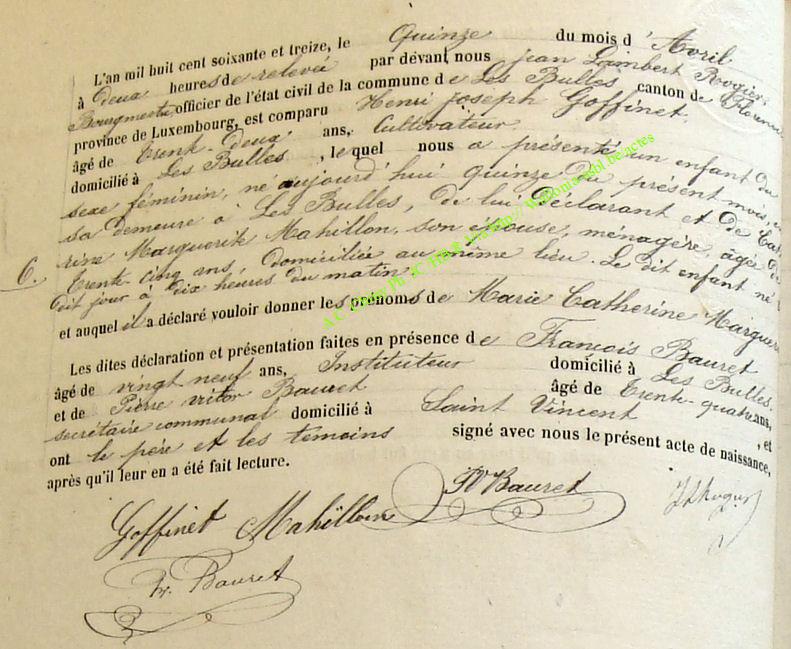 L'an mil huit cent soixante et treize, le Quinze du mois d'Avril
à deux heures de relevée par devant nous Jean Lambert Rogier,
Bourgmestre, officier de l'état civil de la commune de Les Bulles canton de Florenv
province de Luxembourg, est comparu Henri Joseph Goffinet.
âgé de trente-deux ans, Cultivateur
domicilié à Les Bulles, lequel nous a présenté un enfant du
sexe féminin, né aujourd'hui quinze du présent mois, en
sa demeure à Les Bulles, de lui Déclarant et de Cathe
rine Marguerite Mahillon, son épouse, ménagère, âgée de
6. trente-cinq ans, domiciliée au même lieu. Le dit enfant né
dit jour à dix heures du matin
et auquel il a déclaré vouloir donner les prénoms de Marie Catherine Margueri
Les dites déclaration et présentation faites en présence de François Bauret
âgé de vingt neuf ans, Instituteur domicilié à Les Bulles.
et de Pierre victor Bauret âgé de trente-quatre ans,
secrétaire communal domicilié à Saint Vincent, et
ont le père et les témoins signé avec nous le présent acte de naissance,
après qu'il leur en a été fait lecture.
Goffinet Mahillon PV Bauret
Fr. Bauret